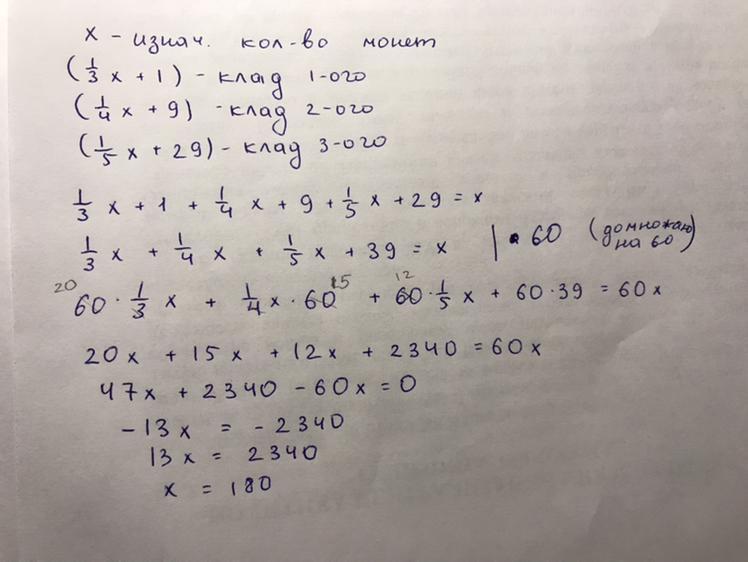 x - изнач. кол-во монет
(1/3 x + 1) - клад 1-ого
(1/4 x + 9) - клад 2-ого
(1/5 x + 29) - клад 3-ого
1/3 x + 1 + 1/4 x + 9 + 1/5 x + 29 = x
1/3 x + 1/4 x + 1/5 x + 39 = x | • 60 (домножаю на 60)
20 15 12
60 · 1/3 x + 1/4 x · 60 + 60 · 1/5 x + 60 · 39 = 60x
20x + 15x + 12x + 2340 = 60x
47x + 2340 - 60x = 0
-13x = -2340
13x = 2340
x = 180